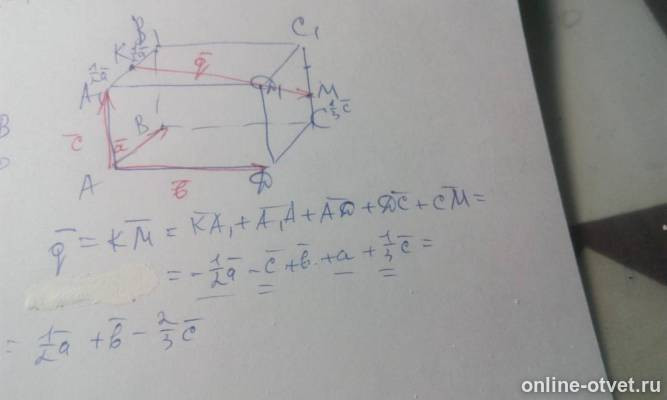 B₁ C₁
K ½a̅ q̅
½a̅
A₁ D₁ M
B C ⅓c̅
c̅ a̅
A b̅ D
q̅ = K̅M̅ = K̅A̅₁ + A̅₁A̅ + A̅D̅ + D̅C̅ + C̅M̅ =
= -½a̅ - c̅ + b̅ + a + ⅓c̅ =
= ½a̅ + b̅ - ⅔c̅
online-otvet.ru